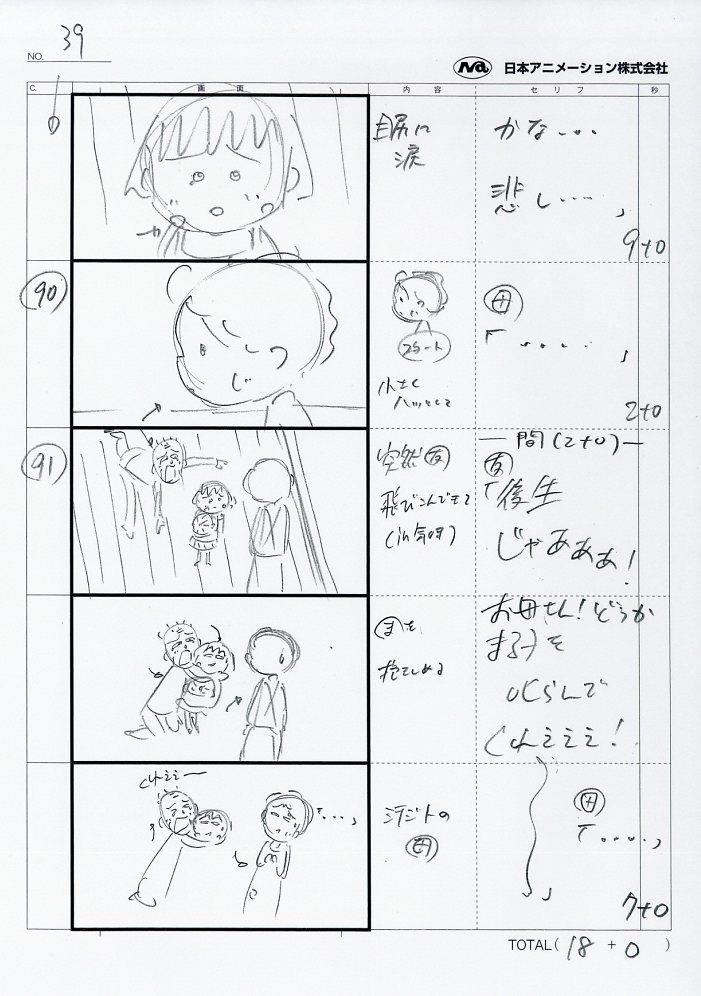 NO. 39
Na 日本アニメーション株式会社
C. 画面 内容 セリフ 秒
目尻に
涙
かな・・・
悲し・・・・」
9+0
90
スカート
小さく
ハッとして
母
「・・・・・」
2+0
91
突然友
飛びこんできて
(in気味)
― 間(2+0) ―
友
「後生
じゃあああ!
まを
抱きしめる
お母さん!どうか
まる子を
くれえええ!
くれええー
「・・・」
汗ジトの
母
母
「・・・・」
」
7+0
TOTAL( 18 + 0 )